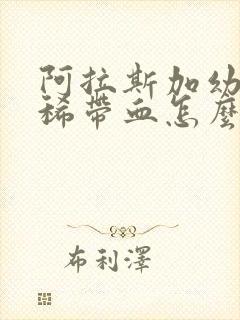 阿拉斯加幼
稀帶血怎麼
布利澤